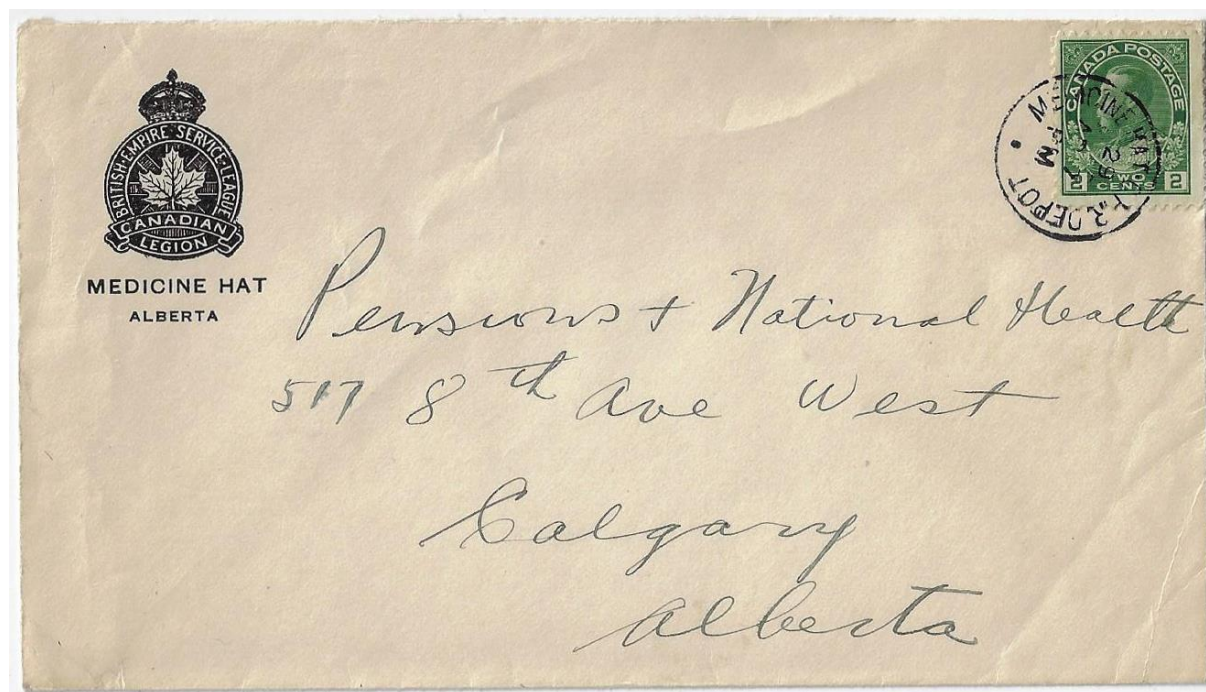 BRITISH·EMPIRE SERVICE·LEAGUE
CANADIAN
LEGION
MEDICINE HAT
ALBERTA
CANADA POSTAGE
2 TWO CENTS 2
MEDICINE HAT Y.R. DEPOT
PM
29
Pensions + National Health
517 8th Ave West
Calgary
Alberta